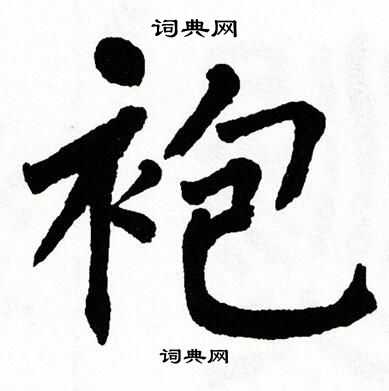 词典网
袍
词典网